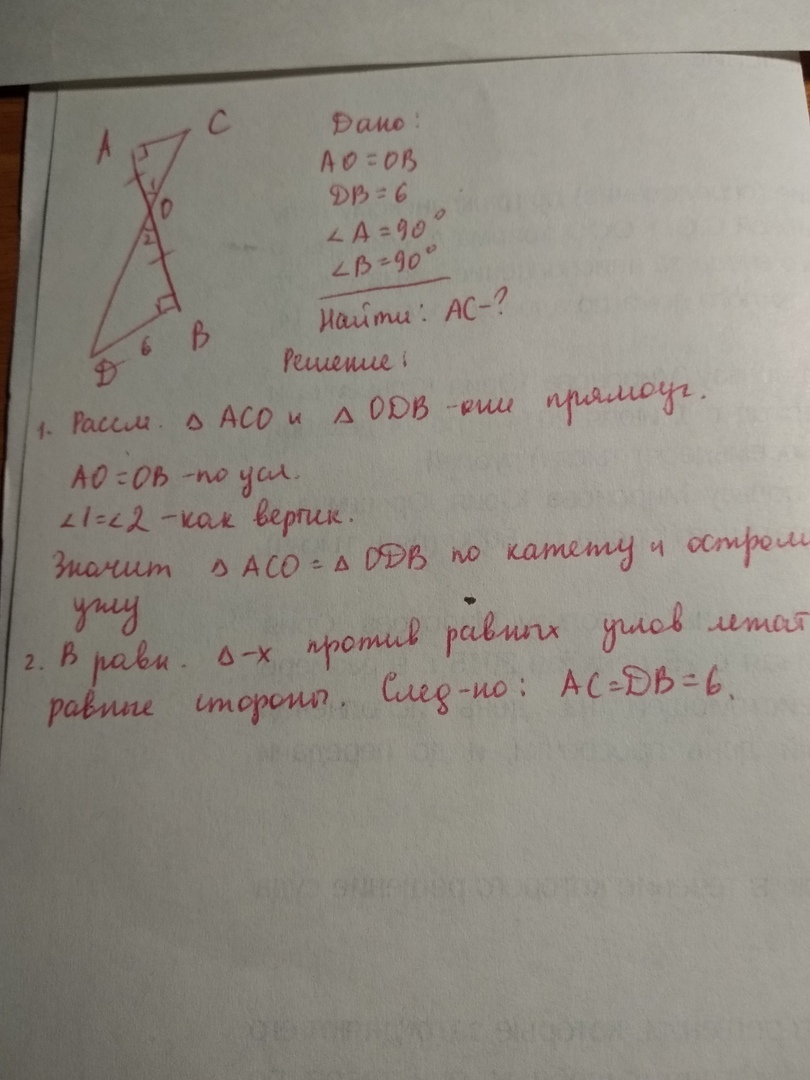 A
C
O
1
2
B
D
6
Дано:
AO = OB
DB = 6
∠A = 90°
∠B = 90°
Найти: AC-?
Решение:
1. Рассм. △ ACO и △ ODB - они прямоуг.
AO = OB - по усл.
∠1 = ∠2 - как вертик.
Значит △ ACO = △ ODB по катету и остром
углу
2. В равн. △-х против равных углов лежат
равные стороны. След-но: AC = DB = 6.